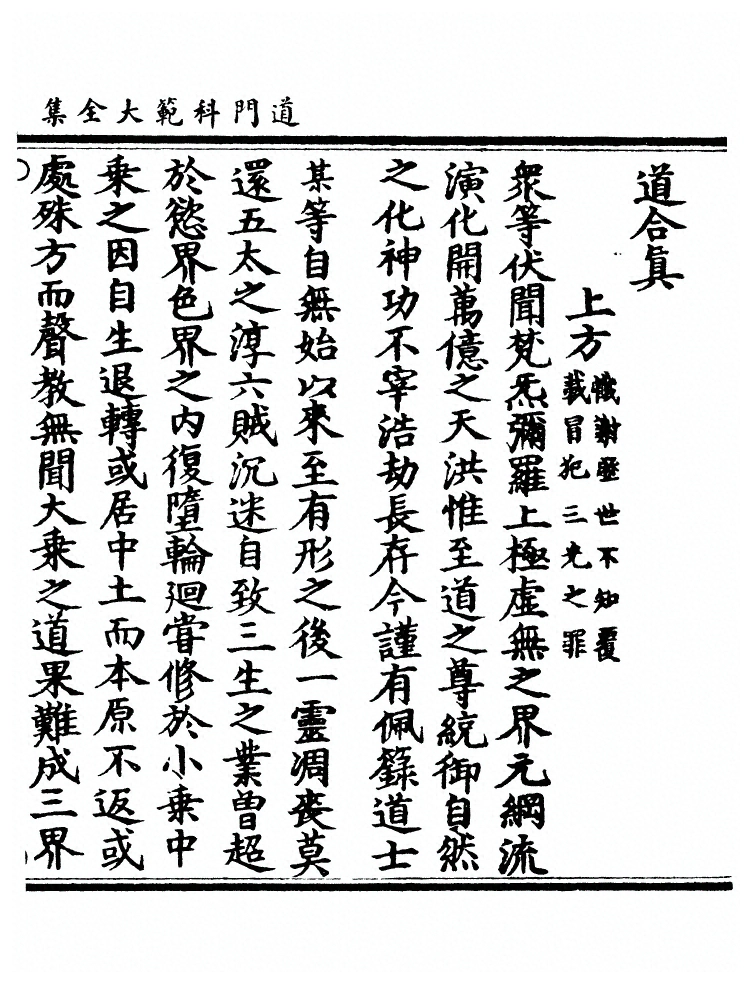 道門科範大全集
道合眞
上方懺謝歷世不知覆
載冒犯三光之罪
衆等伏聞梵炁彌羅上極虛無之界元綱流
演化開萬億之天洪惟至道之尊統御自然
之化神功不宰浩劫長存今謹有佩籙道士
某等自無始以來至有形之後一靈凋喪莫
還五太之淳六賊沉迷自致三生之業曾超
於慾界色界之内復墮輪廻嘗修於小乗中
乗之因自生退轉或居中土而本原不返或
處殊方而聲教無聞大乗之道果難成三界